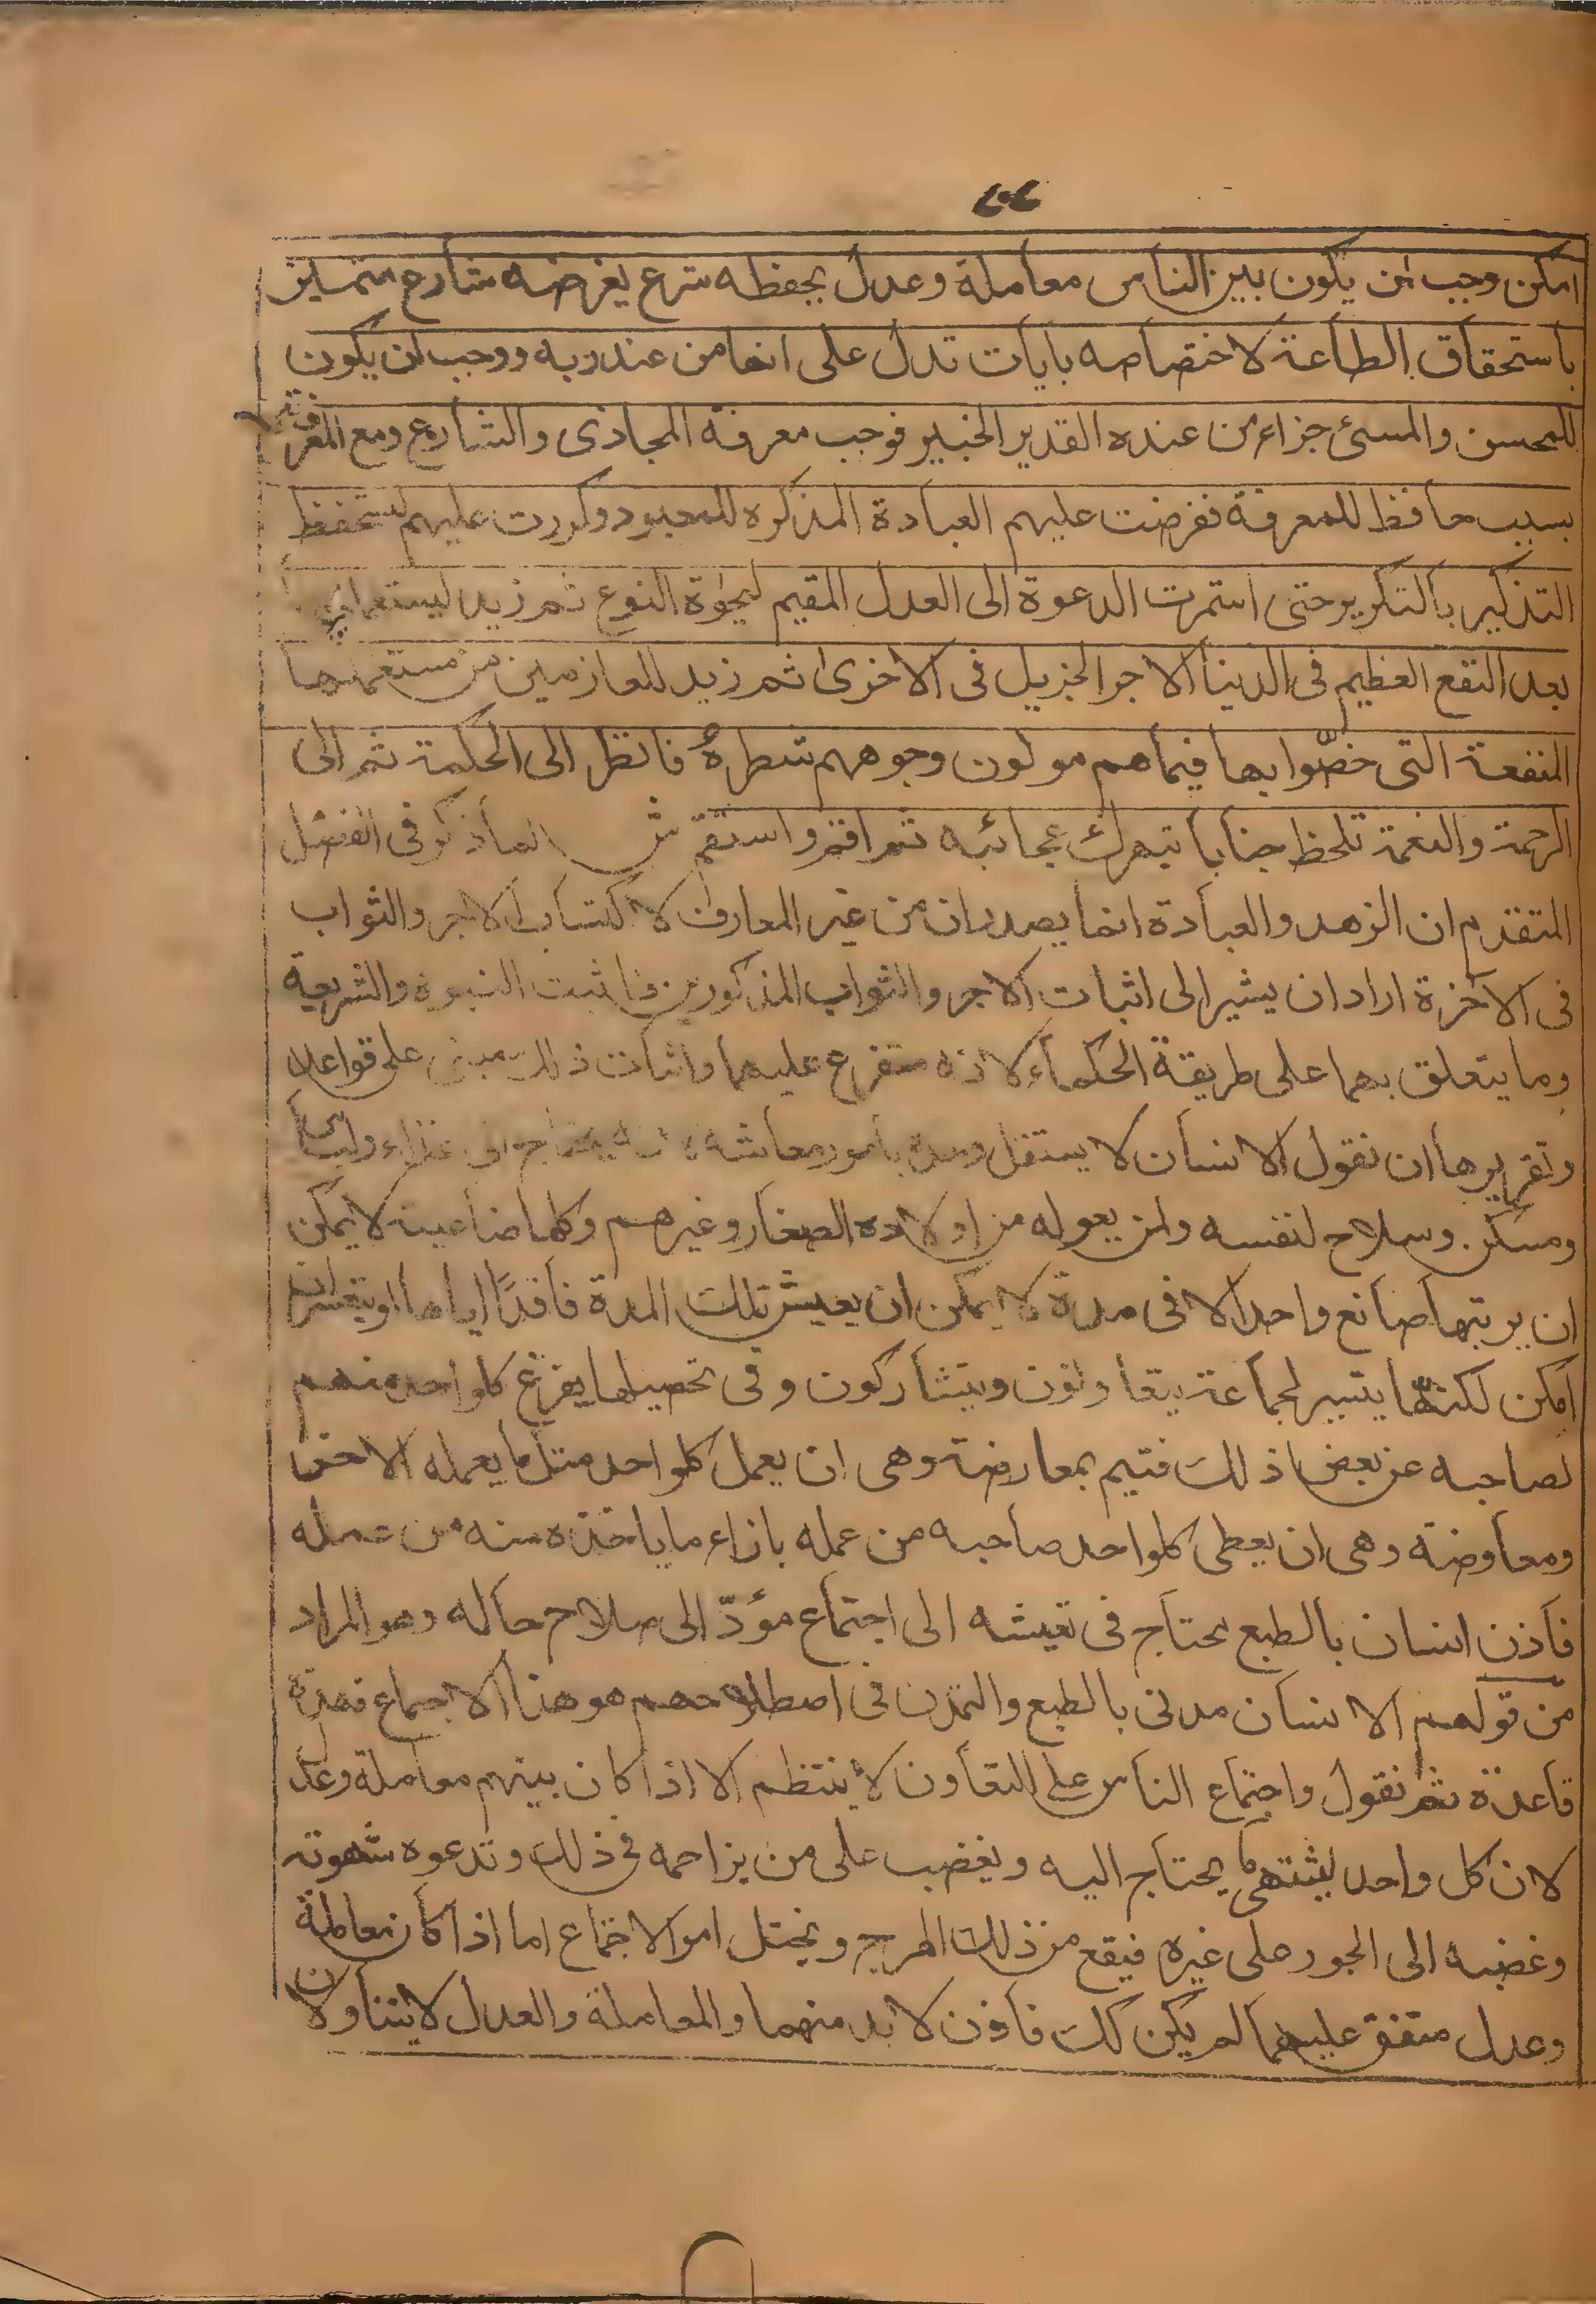 امكن وجب ان يكون بين الناس معاملة وعدل يحفظه شرع يفرضه شارع متمايز
باستحقاق الطاعة لاختصاصه بايات تدل على انها من عند ربه ووجب ان يكون
للمحسن والمسئ جزاء من عنده القدير الخبير فوجب معرفة المجازى والشارع ومع المعرفة
بسبب حافظ للمعرفة ففرضت عليهم العبادة المذكره للمعبود وكررت عليهم ليستحفظ
التذكير بالتكرير حتى استمرت الدعوة الى العدل المقيم لحيوة النوع ثم زيد
بعد النفع العظيم فى الدنيا الاجر الجزيل فى الاخرى ثم زيد للعارفين من مستعمليها
المنفعة التى خصّوا بها فيما هم مولون وجوههم شطره فانظر الى الحكمة ثم الى
الرحمة والنعمة تلحظ جنابا تبهرك عجائبه ثم اقم واستقم ش لما ذكر فى الفصل
المتقدم ان الزهد والعبادة انما يصدران من غير العارف لاكتساب الاجر والثواب
فى الآخرة اراد ان يشير الى اثبات الاجر والثواب المذكورين فاثبت النبوة والشريعة
وما يتعلق بهما على طريقة الحكماء لانه متفرع عليهما واثبات ذلك مبنى على قواعد
وتقريرها ان نقول الانسان لا يستقل وحده بامور معاشه لانه يحتاج الى غذاء ولباس
ومسكن وسلاح لنفسه ولمن يعوله من اولاده الصغار وغيرهم وكلها صناعية لا يمكن
ان يرتبها صانع واحد الا فى مدة لا يمكن ان يعيش تلك المدة فاقدًا اياها او يتعسر ان
امكن لكنّها يتيسر لجماعة يتعاونون ويتشاركون و فى تحصيلها يفرغ كلواحد منهم
لصاحبه عن بعض ذلك فتيم بمعارضة وهى ان يعمل كلواحد مثل ما يعمله الاخر
ومعاوضة وهى ان يعطى كلواحد صاحبه من عمله بازاء ما ياخذه منه من عمله
فاذن انسان بالطبع محتاج فى تعيشه الى اجتماع مؤدّ الى صلاح حاله وهو المراد
من قولهم الانسان مدنى بالطبع والتمدن فى اصطلاحهم هو هذا الاجتماع فهذه
قاعدة ثم نقول واجتماع الناس على التعاون لا ينتظم الا اذا كان بينهم معاملة وعدل
لان كل واحد يشتهى ما يحتاج اليه ويغضب على من يزاحمه فى ذلك وتدعوه شهوته
وغضبه الى الجور على غيره فيقع من ذلك الهرج ويختل امر الاجتماع اما اذا كان معاملة
وعدل متفق عليهما لم يكن كك فاذن لا بد منهما والمعاملة والعدل لا يتناولان